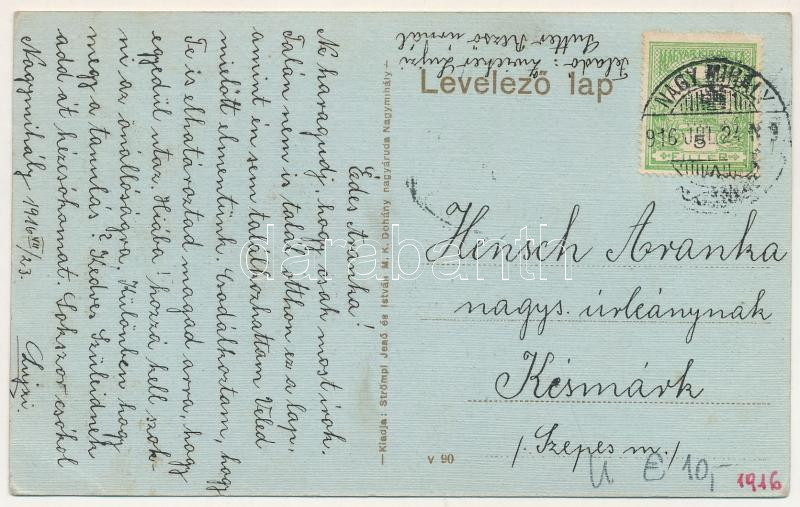 Édes Aranka!
Ne haragudj, hogy csak most írok.
Talán nem is talál otthon ez a lap,
amint én sem találkozhattam Veled
mielőtt elmentünk. Csodálkoztam, hogy
Te is elhatároztad magad arra, hogy
egyedül utaz. Hiába! hozzá kell szok-
ni az önállóságra. Különben hogy
megy a tanulás? Kedves Szüleidnek
add át kézcsókamat. Sokszor csókol
Nagymihály 1916 VII/23. Lujzi
Kiadja: Strömpl Jenő és István M. K. Dohány nagyáruda Nagymihály
Feladó: Lujzi
Sutter Rezső úrnál
Levelező lap
MAGYAR KIR. POSTA
5
FILLÉR
NAGYMIHÁLY
916 JUL 24
Hensch Aranka
nagys. úrleánynak
Késmárk
/Szepes m./
V 90
U € 10,-
1916
darabanth